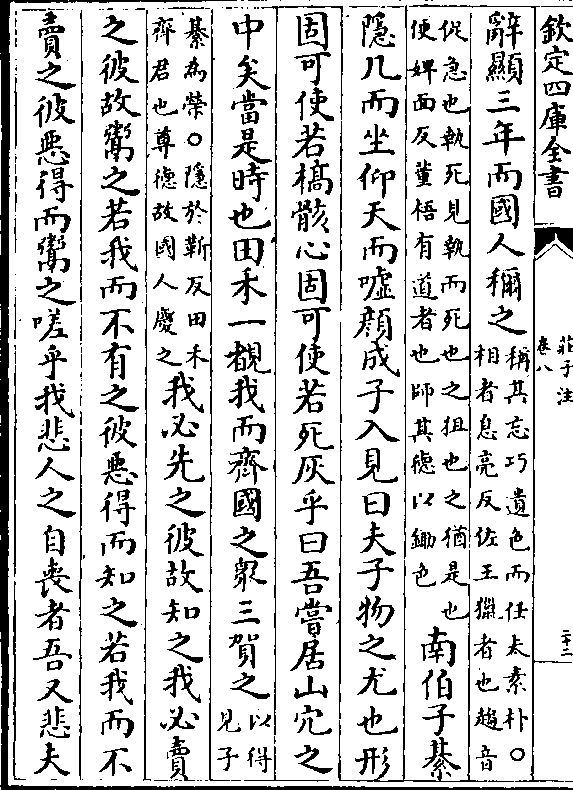 欽定四庫全書
莊子注
卷八
二十二
辭顯三年而國人稱之
稱其忘巧遺色而任太素朴〇
相者息亮反佐王獵者也趨音
促急也執死見執而死也之狙也之猶是也
便婢面反董梧有道者也師其德以鋤色
南伯子綦
隱几而坐仰天而噓顔成子入見曰夫子物之尤也形
固可使若槁骸心固可使若死灰乎曰吾嘗居山穴之
中矣當是時也田禾一覩我而齊國之衆三賀之
以得
見子
綦為榮〇隱於靳反田禾
齊君也尊德故國人慶之
我必先之彼故知之我必賣
之彼故鬻之若我而不有之彼惡得而知之若我而不
賣之彼惡得而鬻之嗟乎我悲人之自喪者吾又悲夫